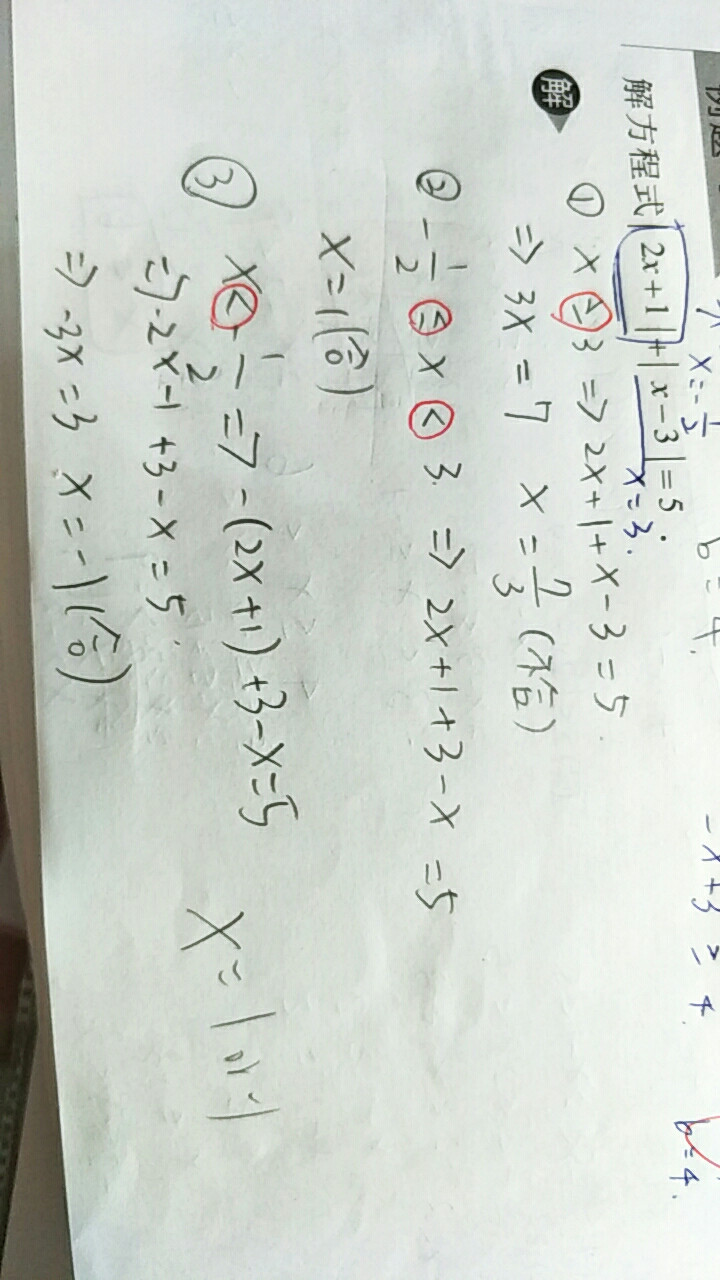 例題
x=-1/2
b=4.
-x+3≥4
b=4.
解方程式|2x+1|+|x-3|=5。
x=3.
解
① x≥3 => 2x+1+x-3=5.
=> 3x=7 x=7/3 (不合)
② -1/2≤x<3. => 2x+1+3-x=5
x=1(合)
③ x<-1/2 => -(2x+1)+3-x=5
=> -2x-1+3-x=5.
=> -3x=3 x=-1(合)
x=1 or -1